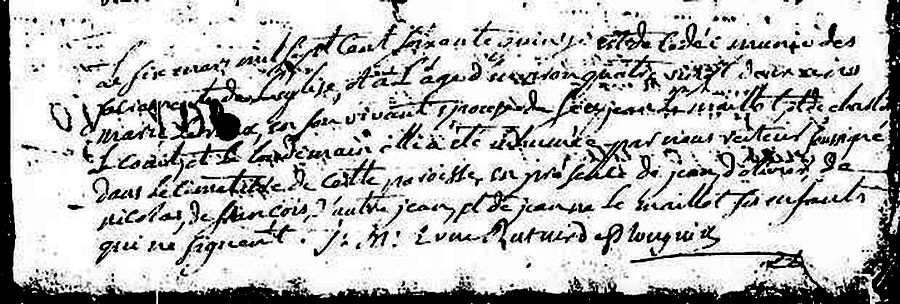 Le six mars mil sept cent soixante quinze est decedée munie des
sacrements de l'eglise, et à l'age d'environ quatre vingt deux ans
marie en son vivant epouse de feu jean le maillot
et le landemain elle a été inhumée par nous recteur soussigné
dans le cimetiere de cette paroisse, en présence de jean, d'olivier, de
nicolas, de françois, d'autre jean, et de jeanne le maillot ses enfants
qui ne signent. J. M.